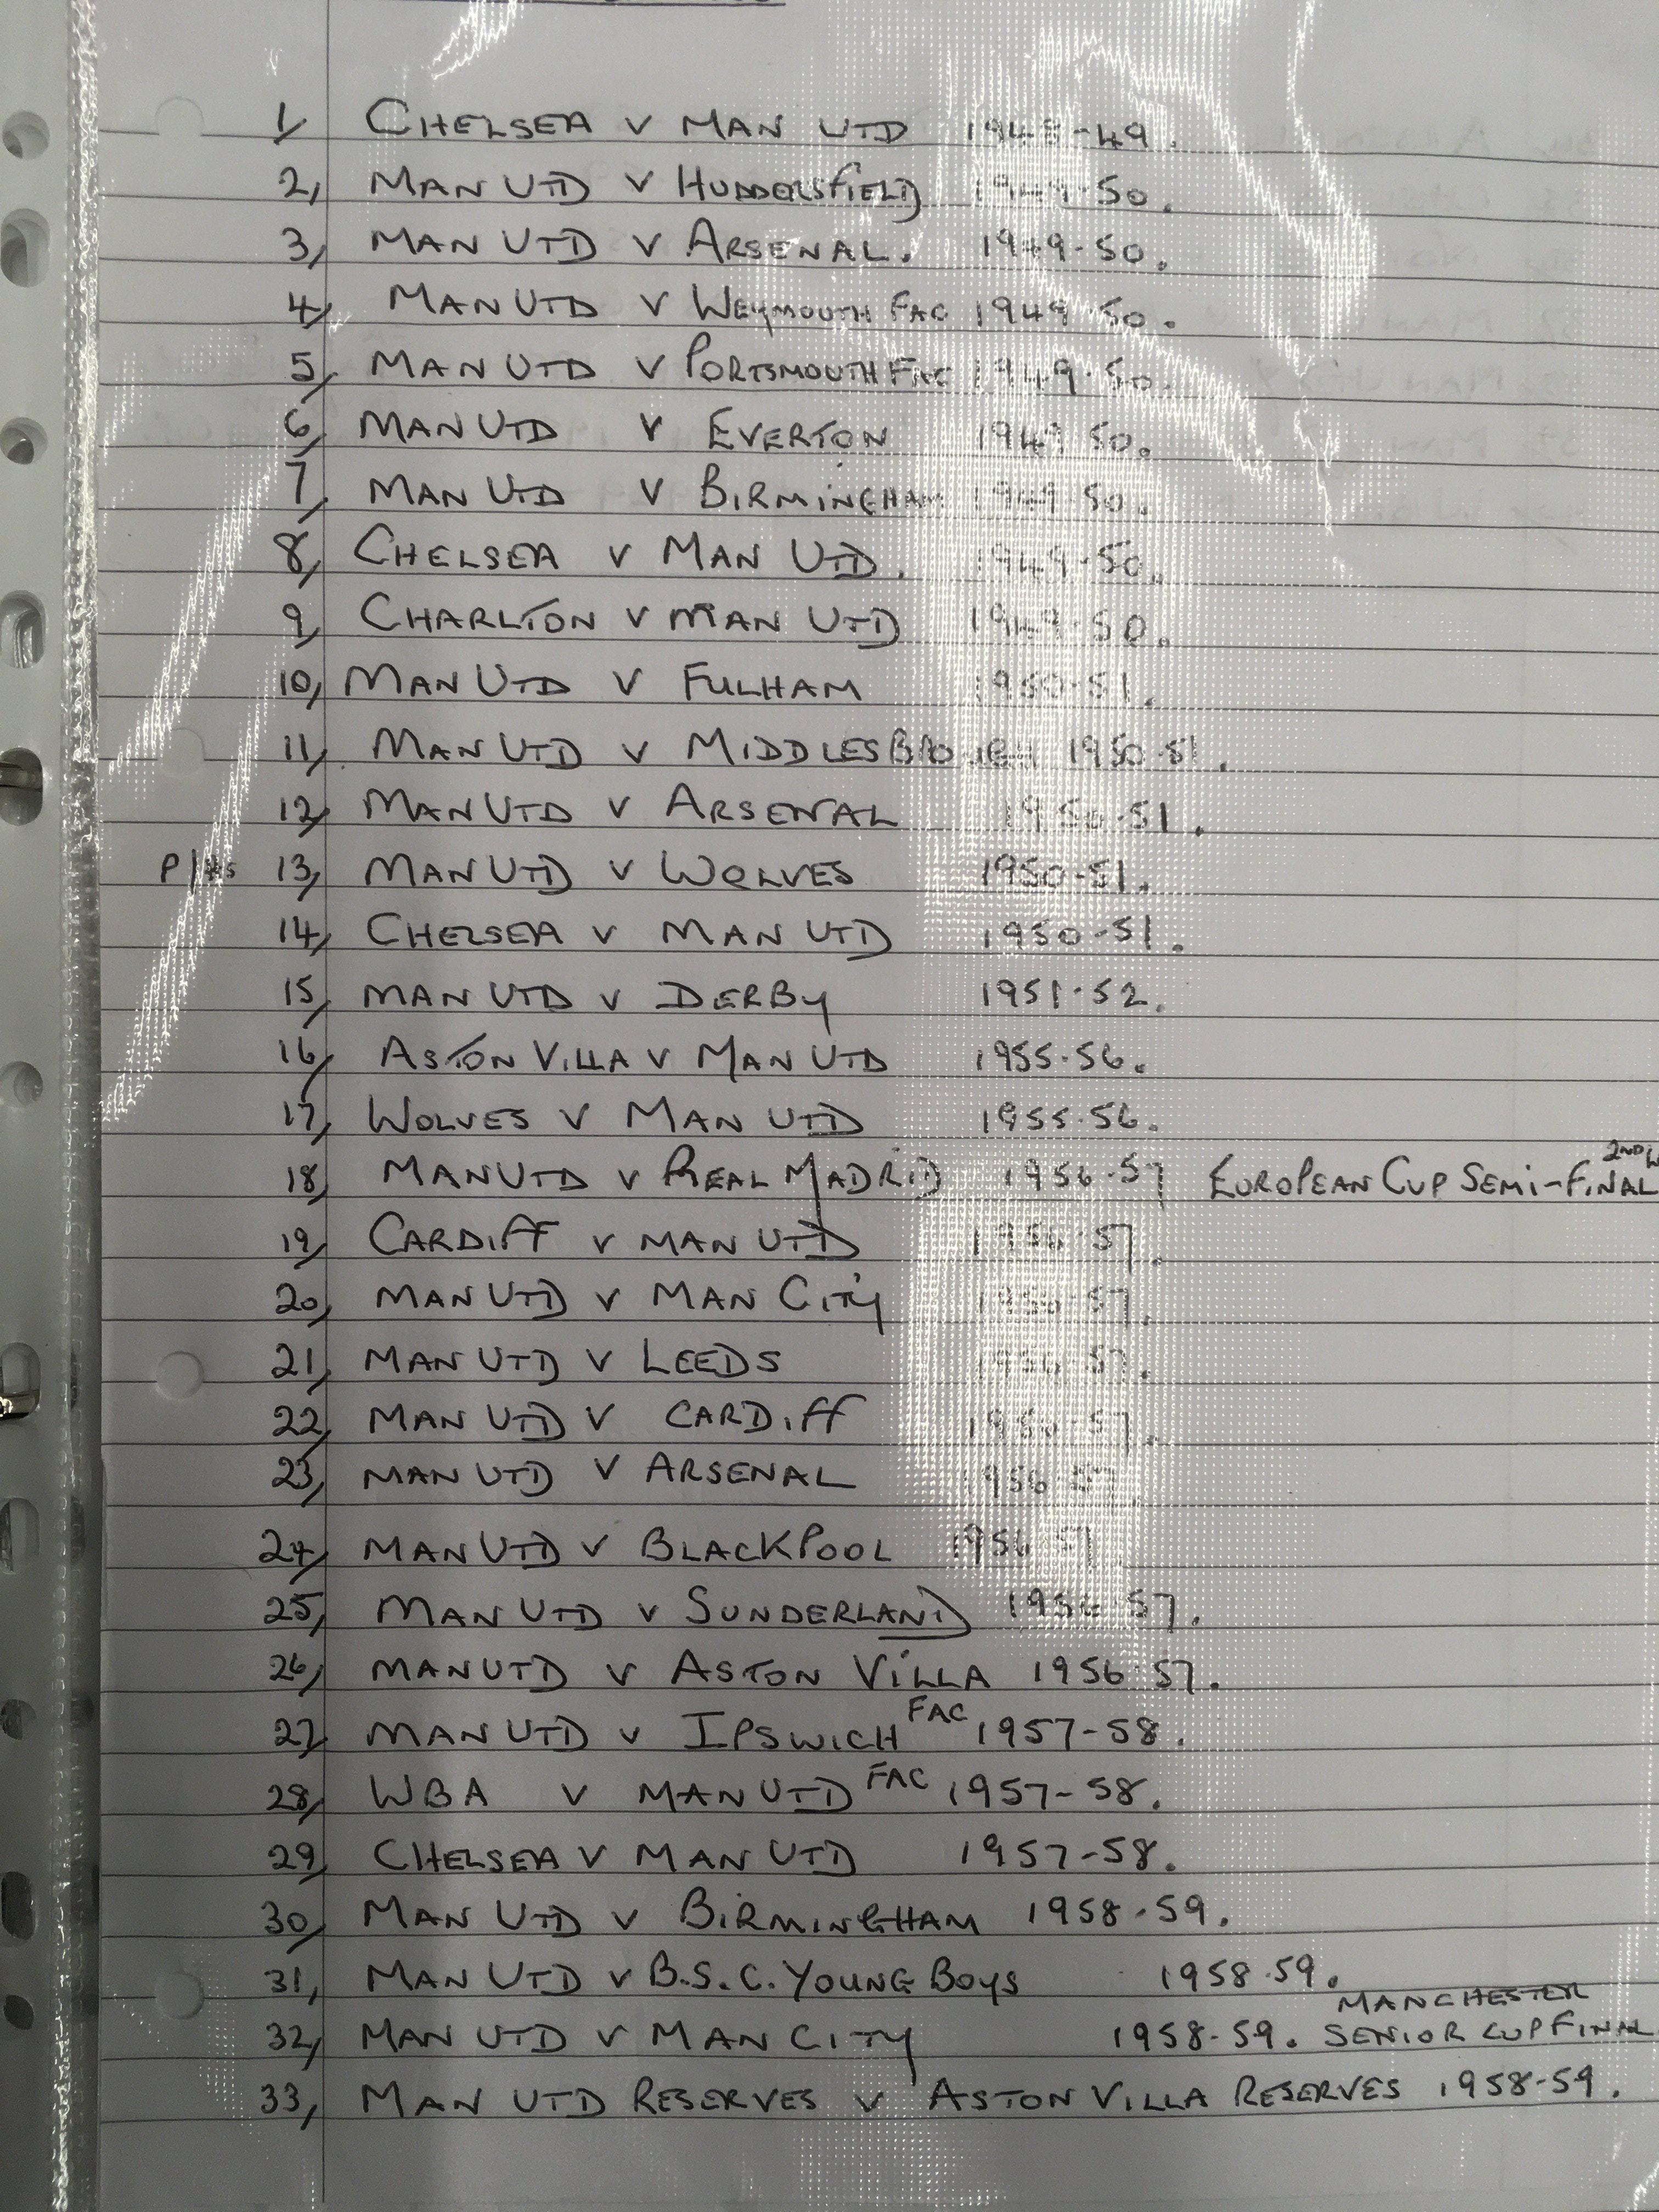 1, CHELSEA V MAN UTD 1948-49.
2, MAN UTD V HUDDERSFIELD 1949-50.
3, MAN UTD V ARSENAL. 1949-50.
4, MAN UTD V WEYMOUTH FAC 1949-50.
5, MAN UTD V PORTSMOUTH FAC 1949-50.
6, MAN UTD V EVERTON 1949-50.
7, MAN UTD V BIRMINGHAM 1949-50.
8, CHELSEA V MAN UTD. 1949-50.
9, CHARLTON V MAN UTD 1949-50.
10, MAN UTD V FULHAM 1950-51.
11, MAN UTD V MIDDLESBROUGH 1950-51.
12, MAN UTD V ARSENAL 1950-51.
13, MAN UTD V WOLVES 1950-51.
14, CHELSEA V MAN UTD 1950-51.
15, MAN UTD V DERBY 1951-52.
16, ASTON VILLA V MAN UTD 1955-56.
17, WOLVES V MAN UTD 1955-56.
18, MAN UTD V REAL MADRID 1956-57 EUROPEAN CUP SEMI-FINAL 2ND
19, CARDIFF V MAN UTD 1956-57.
20, MAN UTD V MAN CITY 1956-57.
21, MAN UTD V LEEDS 1956-57.
22, MAN UTD V CARDIFF 1956-57.
23, MAN UTD V ARSENAL 1956-57.
24, MAN UTD V BLACKPOOL 1956-57.
25, MAN UTD V SUNDERLAND 1956-57.
26, MAN UTD V ASTON VILLA 1956-57.
27, MAN UTD V IPSWICH FAC 1957-58.
28, WBA V MAN UTD FAC 1957-58.
29, CHELSEA V MAN UTD 1957-58.
30, MAN UTD V BIRMINGHAM 1958-59.
31, MAN UTD V B.S.C. YOUNG BOYS 1958-59.
32, MAN UTD V MAN CITY 1958-59. MANCHESTER SENIOR CUP FINAL
33, MAN UTD RESERVES V ASTON VILLA RESERVES 1958-59.